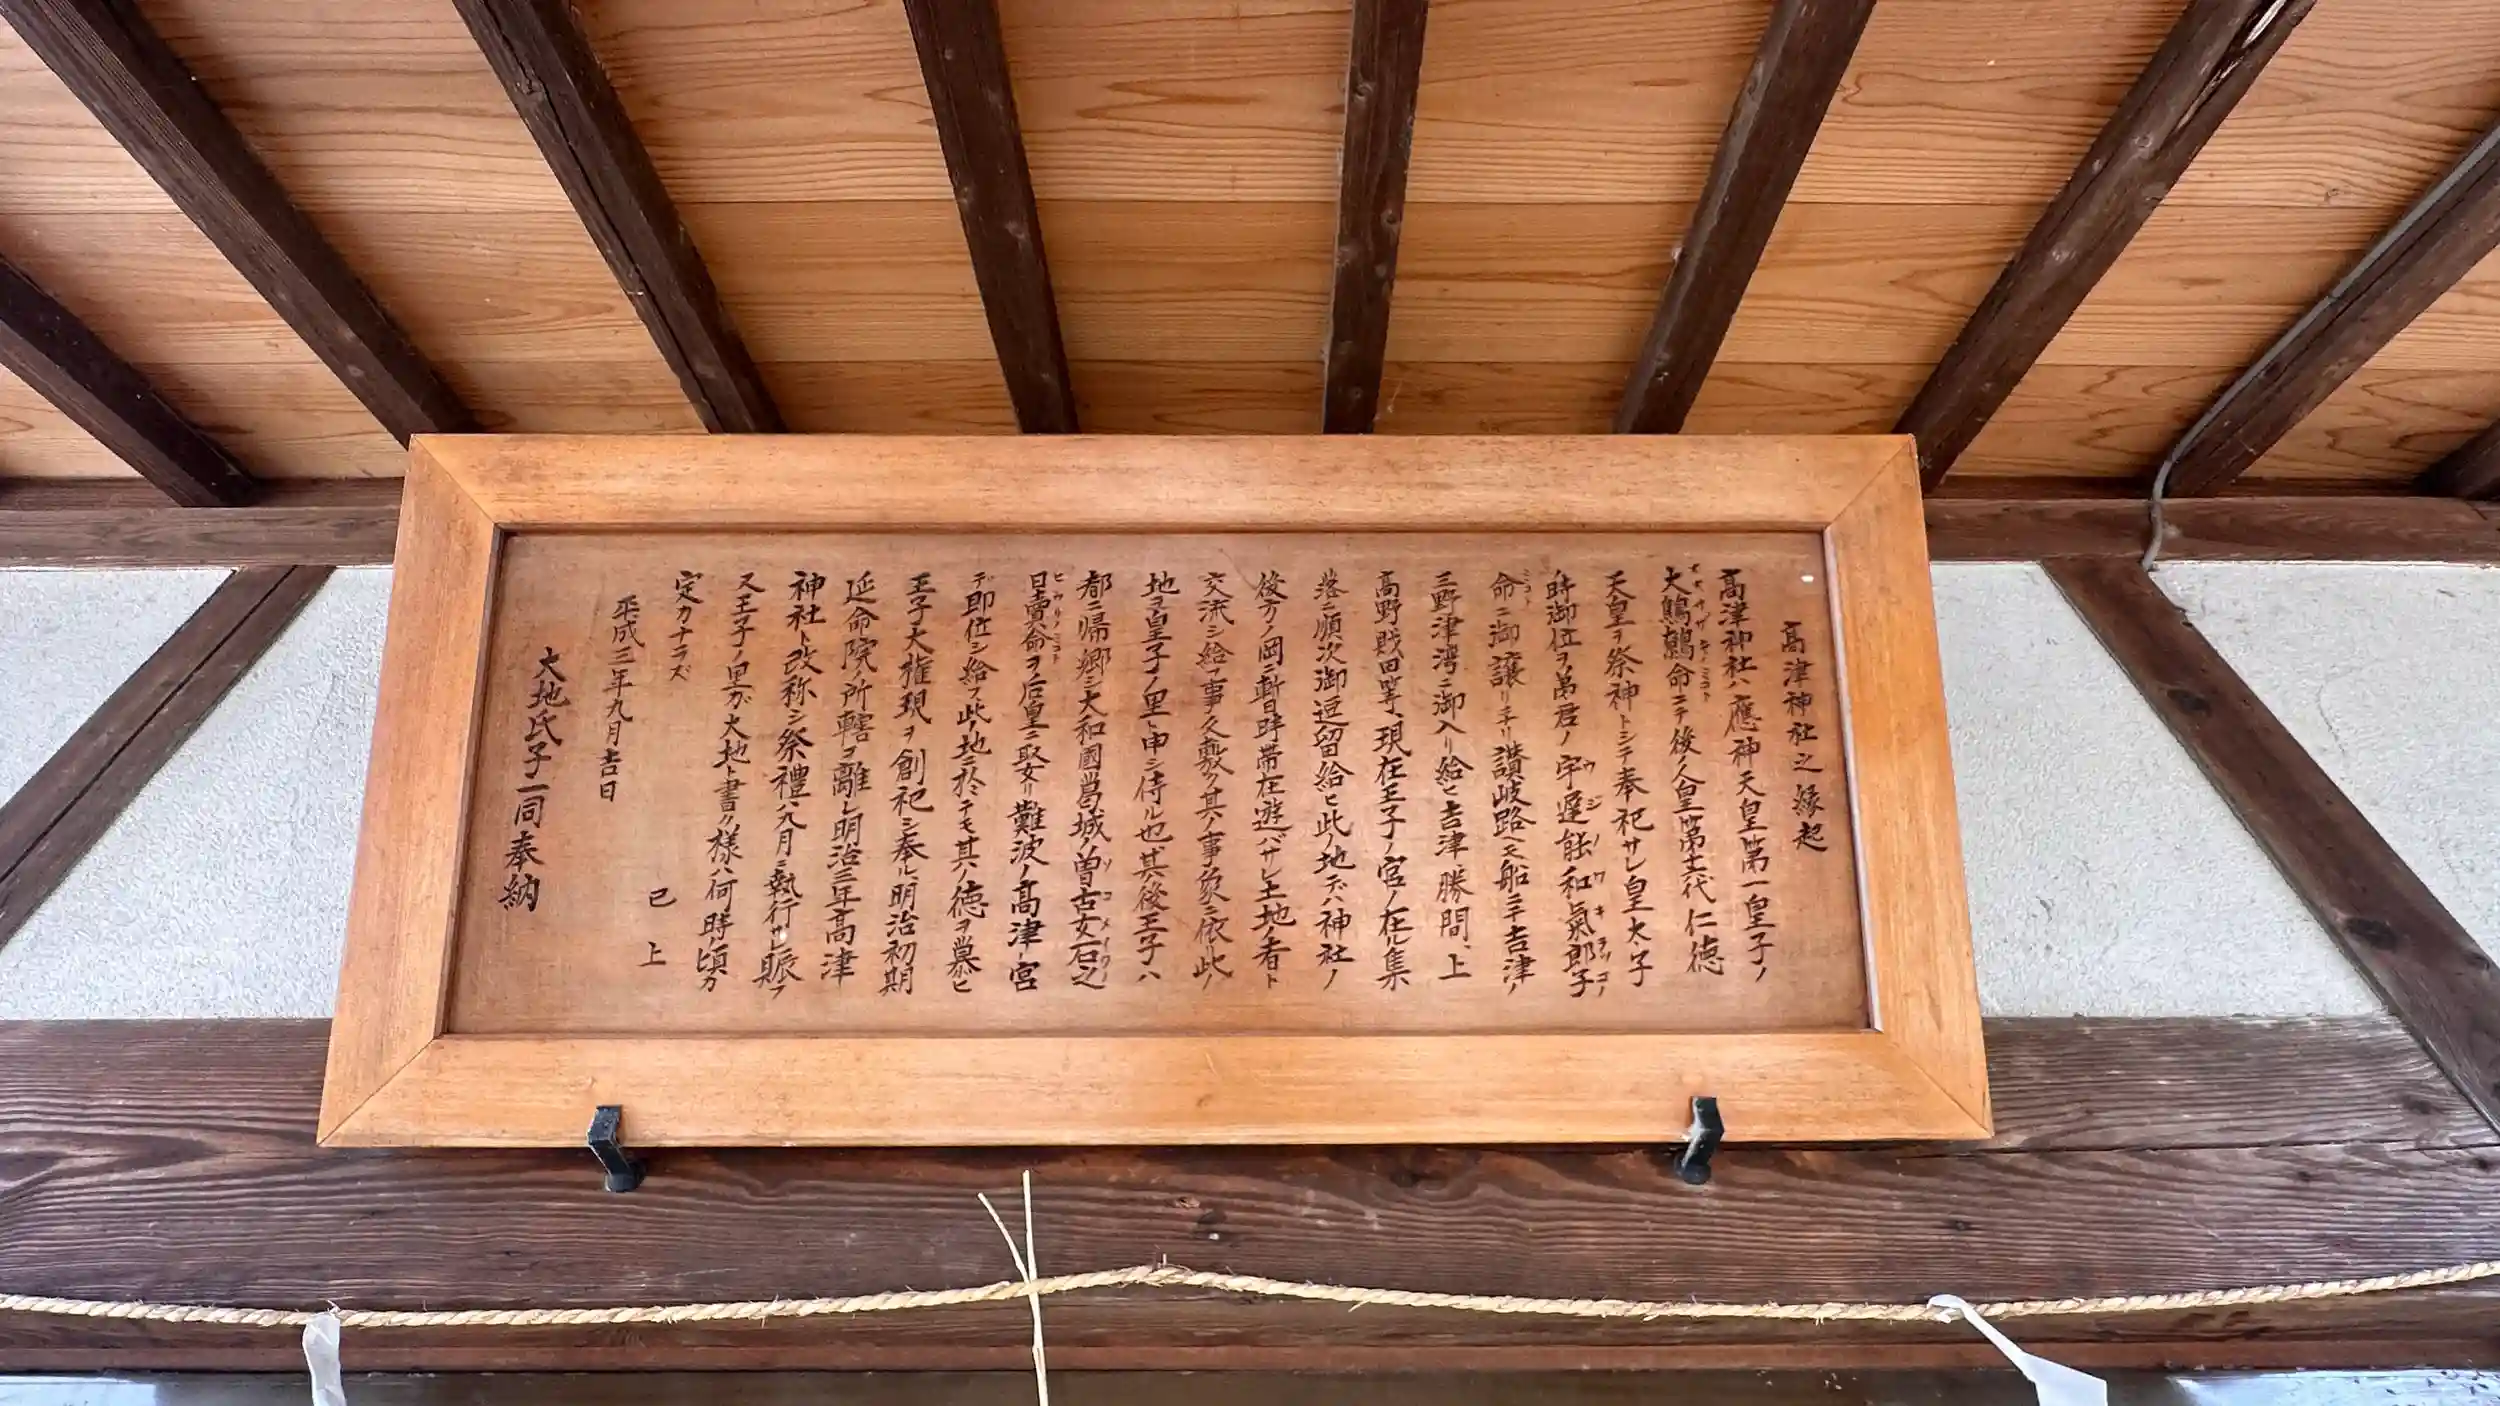 高津神社之縁起
高津神社ハ應神天皇第一皇子ノ
大鷦鷯命ニテ後ノ人皇第十六代仁徳
天皇ヲ祭神トシテ奉祀サレ皇太子
時御位ヲノ弟君ノ宇遅能和氣郎子
命ニ御譲リナリ讃岐路ヘモ船ニテ吉津ノ
三野津湾ニ御入リ給ヒ吉津、勝間、上
高野戝田等、現在王子ノ宮ノ在ル集
落ニ順次御逗留給ヒ此ノ地デハ神社ノ
後方ノ岡ニ暫時帯在遊バサレ土地ノ者ト
交流シ給フ事久敷ク其ノ事象ニ依此ノ
地ヲ皇子ノ里ト申シ侍ル也其後王子ハ
都ニ帰郷シ大和國葛城ノ曽古女石之
日売命ヲノ后皇ニ娶リ難波ノ高津ノ宮
デ即位シ給フ此ノ地ニ於テモ其ノ徳ヲ慕ヒ
王子大権現ヲ創祀シ奉ル明治初期
延命院ノ所轄ヲ離レ明治三年高津
神社ト改称シ祭禮ハ九月ニ執行サレ賑フ
又王子ノ里ガ大地ト書ク様ハ何時ノ頃カ
定カナラズ
已上
平成三年九月吉日
大地氏子一同奉納